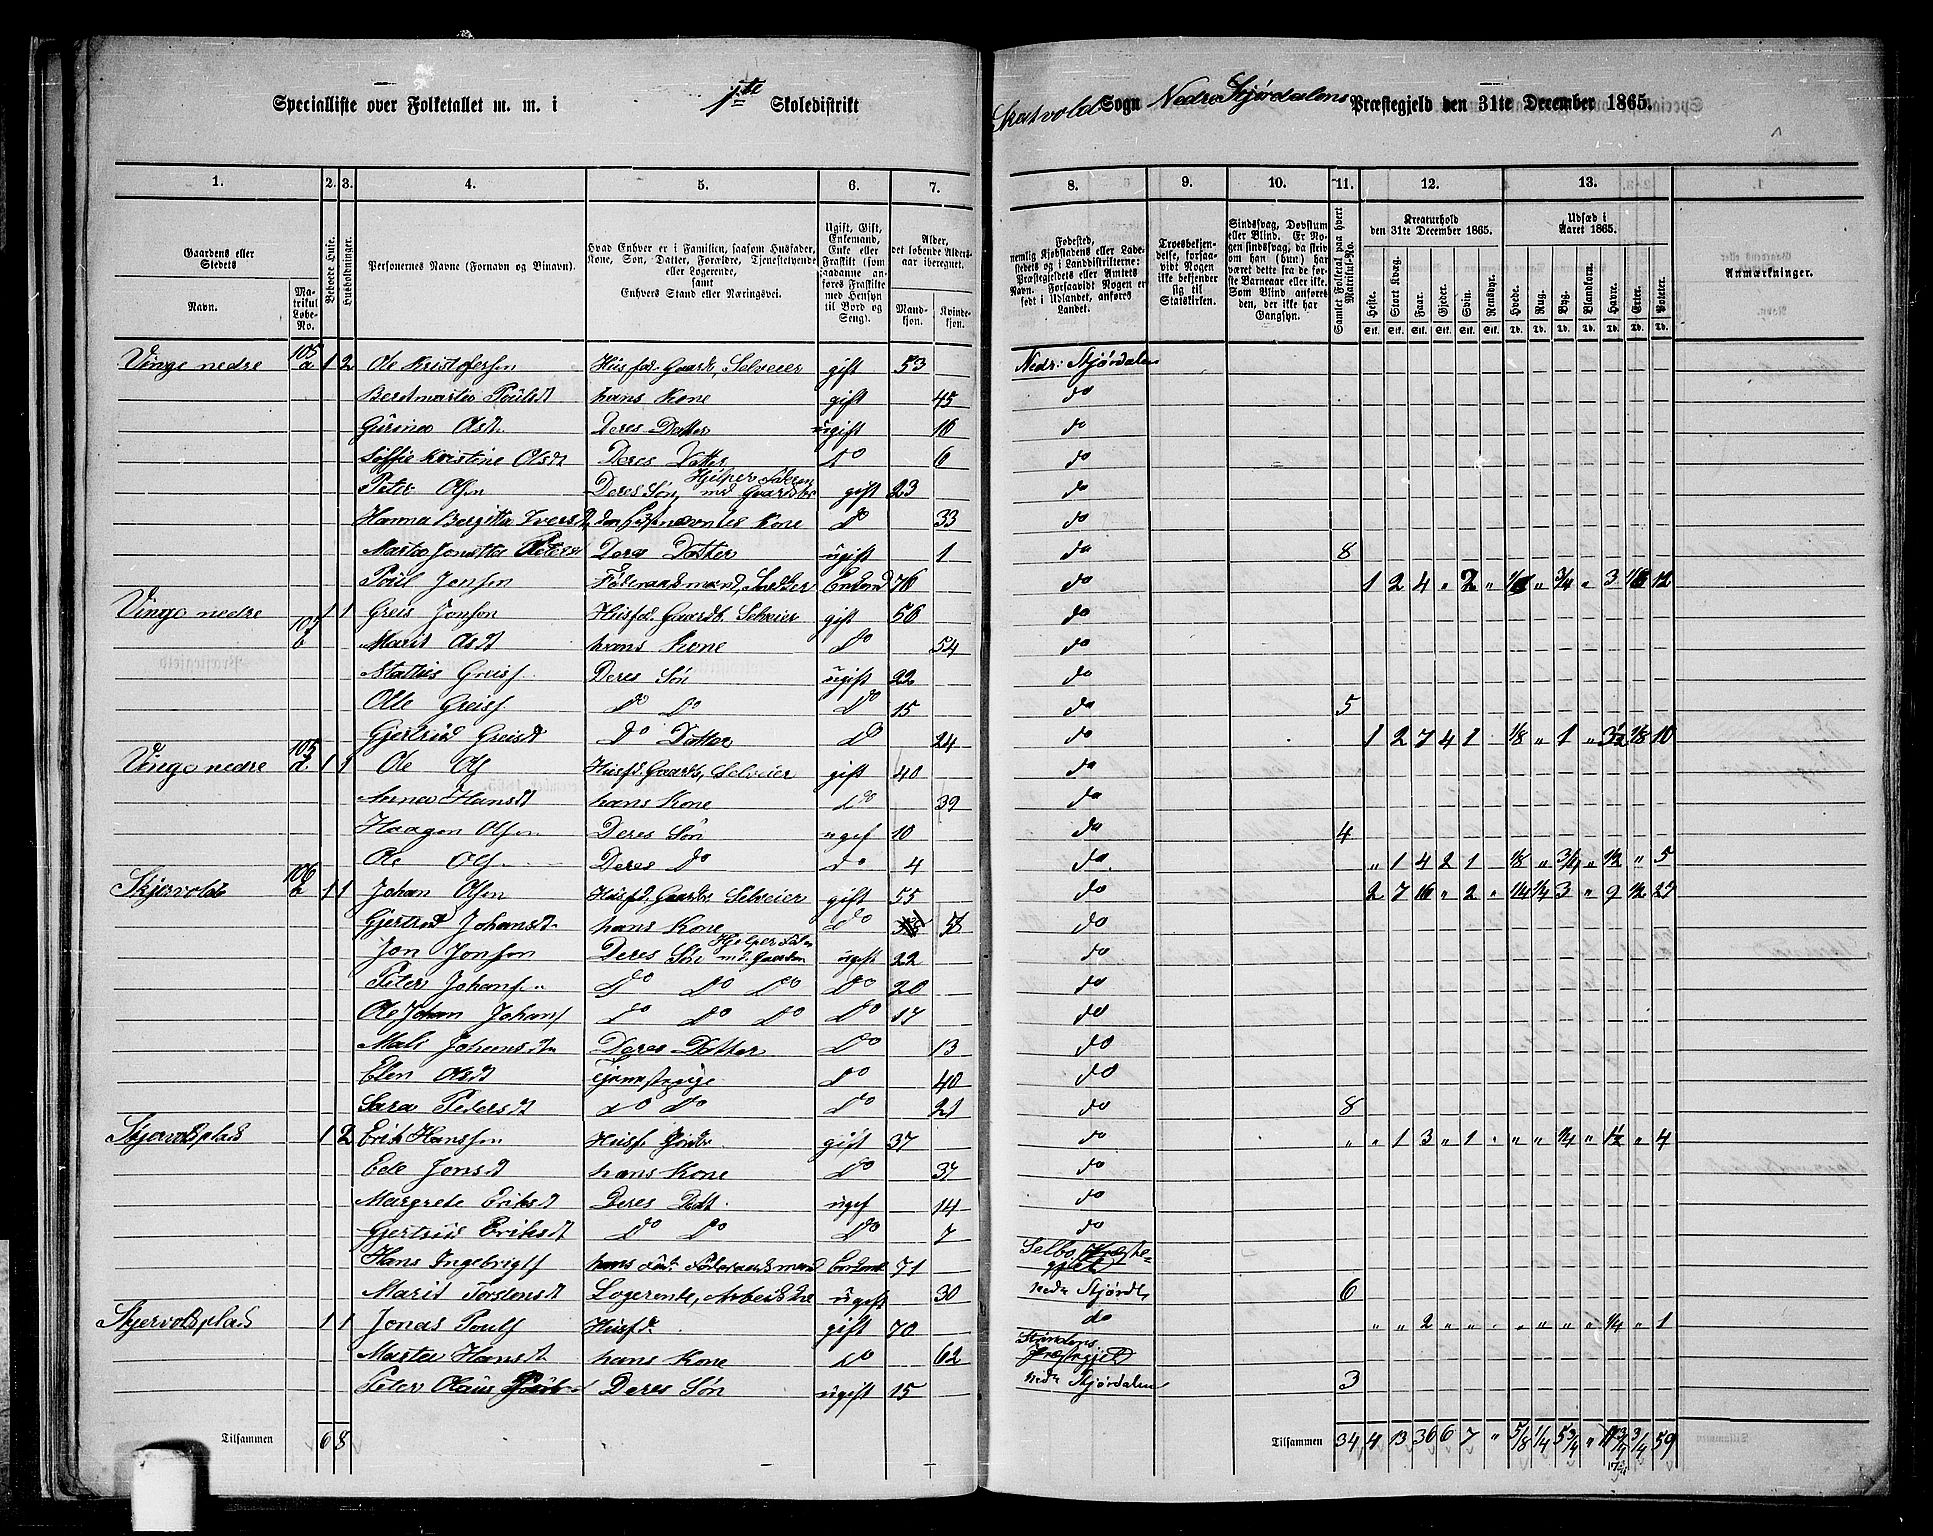 Specialliste over Folketallet m. m. i 1ste Skoledistrikt Skatvold Sogn Nedre Stjørdalens Præstegjeld den 31te December 1865.
1. 2. 3. 4. 5. 6. 7. 8. 9. 10. 11. 12. 13.
Gaardens eller Stedets
Navn.
Matrikul Løbe-No.
Beboede Huse.
Husholdninger.
Personernes Navne (Fornavn og Tilnavn).
Hvad Enhver er i Familien, saasom Husfader, Kone, Søn, Datter, Forældre, Tjenestetyende eller Logerende, samt Enhvers Stand eller Næringsvei.
Ugift, Gift, Enkemand, Enke eller Fraskilt (som saadanne anføres Fraskilte med Hensyn til Bord og Seng).
Alder, det løbende Aldersaar iberegnet.
Mandkjøn. Kvindekjøn.
Fødested,
nemlig Kjøbstadens eller Ladestedets og i Landdistrikterne: Præstegjeldets eller Amtets Navn. Forsaavidt Nogen er født i Udlandet, anføres Landet.
Troesbekjendelse, forsaavidt Nogen ikke bekjender sig til Statskirken.
Sindssvag, Døvstum eller Blind. Er Nogen sindssvag, da skrives om han (hun) har været dette fra de første Barneaar eller ikke. Som Blind anføres den, der ikke har Gangsyn.
Samlet Folketal paa hvert Matrikul-No.
Kreaturhold den 31te December 1865.
Heste. Stort Kvæg. Faar. Gjeder. Svin. Rensdyr.
Udsæd i Aaret 1865.
Hvede. Rug. Byg. Blandkorn. Havre. Erter. Poteter.
Anmærkninger.
Vinge nedre 105 a 1 2 Ole Kristofersen Husfd. Gaardb, Selveier gift 53 Nedr: Stjørdalen
Beretmarta Poulsdt hans Kone gift 45 do
Gurina Olsdt Deres Datter ugift 16 do
Soffie Kristine Olsdt Deres Datter do 6 do
Peter Olsen Deres Søn, Hjelper Faderen med Gaardsbr gift 23 do
Hanna Bergitta Iversdt den Sidstnævntes Kone do 33 do
Marta Jonetta Petersd Deres Datter ugift 1 do 8
Poul Jonsen Føderaadsmand, Enkemd 76 do 1 2 4 " 2 " " 3/4 " 3 12
Vinge nedre 105 b 1 1 Greis Jonsen Husfd. Gaardb. Selveier gift 56 do
Marit Olsdt hans Kone do 54 do
Mathis Greiss. Deres Søn ugift 22 do
Ole Greiss. do do do 15 do 5
Gjertrud Greisdt do Datter do 24 do 1 2 7 4 1 " 1/8 " 1 " 3 1/2 1/8 10
Vinge nedre 105 d 1 1 Ole Ols. Husfd. Gaardb, Selveier gift 40 do
Anna Hansdt hans Kone do 39 do
Haagen Olsen Deres Søn ugif 10 do 4
Ole Ols. Deres do do 4 do " 1 4 2 1 " 1/8 " 3/4 " 1 1/2 " 5
Skjervold 106 a 1 1 Johan Olsen Husfd. Gaardbr Selveier gift 55 do 2 7 16 " 2 " 1/4 1/4 3 " 9 1/2 27
Gjertrud Johansdt hans Kone do 58 do
Jon Jonsen Deres Søn Hjelper Fader med Gaarden ugift 22 do
Peter Johans. do do do do 20 do
Ole Johan Johans do do do do 17 do
Mali Johansdtr Deres Datter do 13 do
Elen Olsdt Tjenestepige do 40 do
Sara Pedersdt do do do 21 do 8
Skjervoldsplads 1 2 Erik Hanssen Husf. Jordbr gift 37 do " " 1 3 " 1 " " " 1/4 " 1 1/2 " 4
Ede Jonsdt hans Kone do 37 do
Margrete Eriksdt Deres Dat. ugif 14 do
Gjertrud Eriksdt do do do 7 do
Hans Ingebrigts hans Fad. Føderaadsmand Enkemd 71 Selbo Præstegjeld
Marit Torstensdt Logerende, Arbeidsk ugift 30 nedr Stjørdl, 6
Skjervoldsplads 1 1 Jonas Pouls Husfd. gift 70 do " " 2 " " " " " " " 1/4 " 1
Marta Hansdt hans Kone do 62 Præstegjeld
Peter Olaus Deres Søn ugift 15 nedr Stjørdalen 3
Tilsammen 6 8
Tilsammen 34 4 13 36 6 7 " 5/8 1/4 5 3/4 " 3/4 59